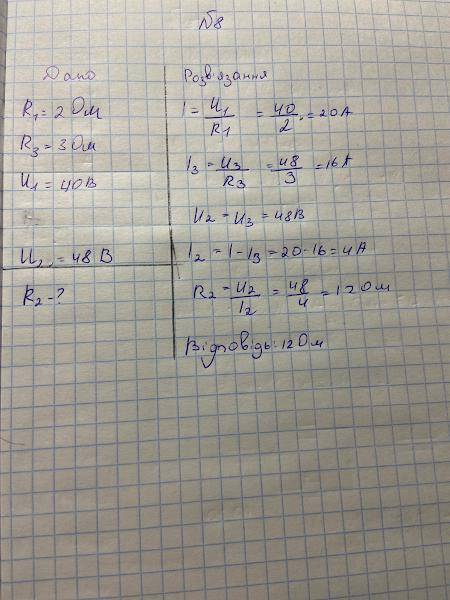 №8
Дано
R1 = 2 Ом
R3 = 3 Ом
U1 = 40 В
U2 = 48 В
R2 - ?
Розв'язання
I = U1/R1 = 40/2 = 20 А
I3 = U3/R3 = 48/3 = 16 А
U2 = U3 = 48 В
I2 = I - I3 = 20 - 16 = 4 А
R2 = U2/I2 = 48/4 = 12 Ом
Відповідь: 12 Ом